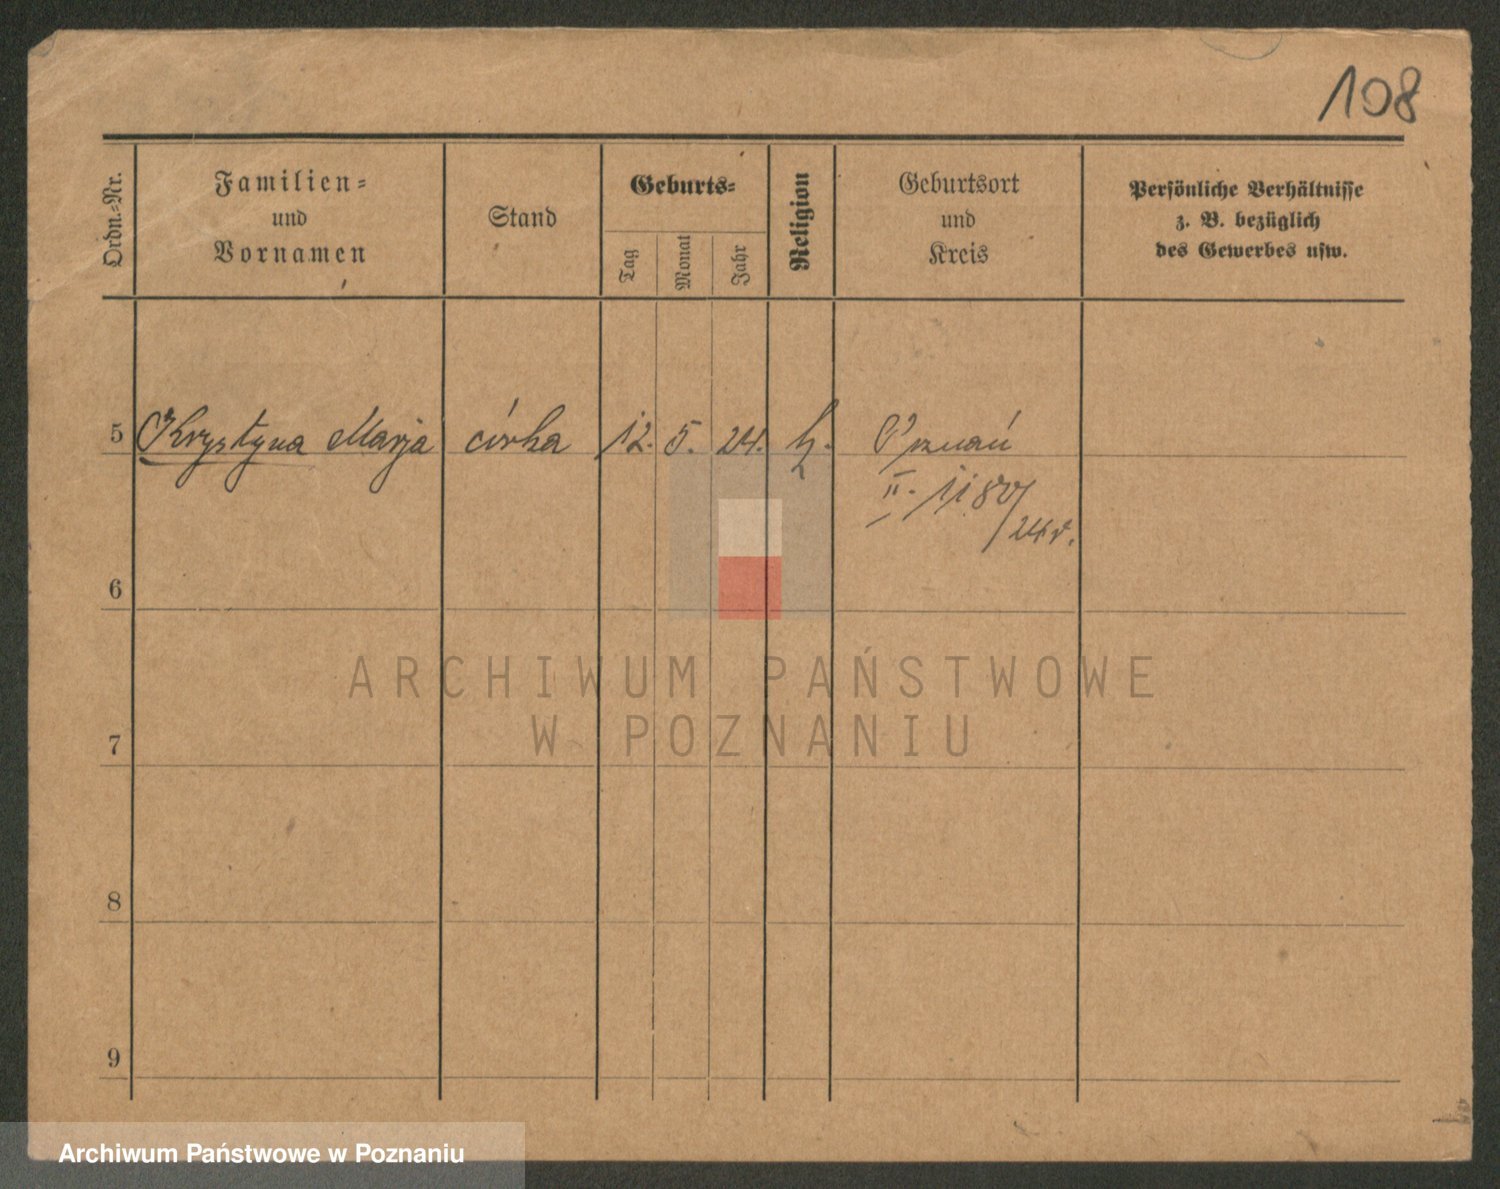 108
Ordn.-Nr.
Familien-
und
Vornamen
Stand
Geburts-
Tag
Monat
Jahr
Religion
Geburtsort
und
Kreis
Persönliche Verhältnisse
z. B. bezüglich
des Gewerbes usw.
5 Krystyna Marja córka 12. 5. 24. Poznań
II. 1180/
24 r.
6
ARCHIWUM PAŃSTWOWE
W POZNANIU
7
8
9
Archiwum Państwowe w Poznaniu